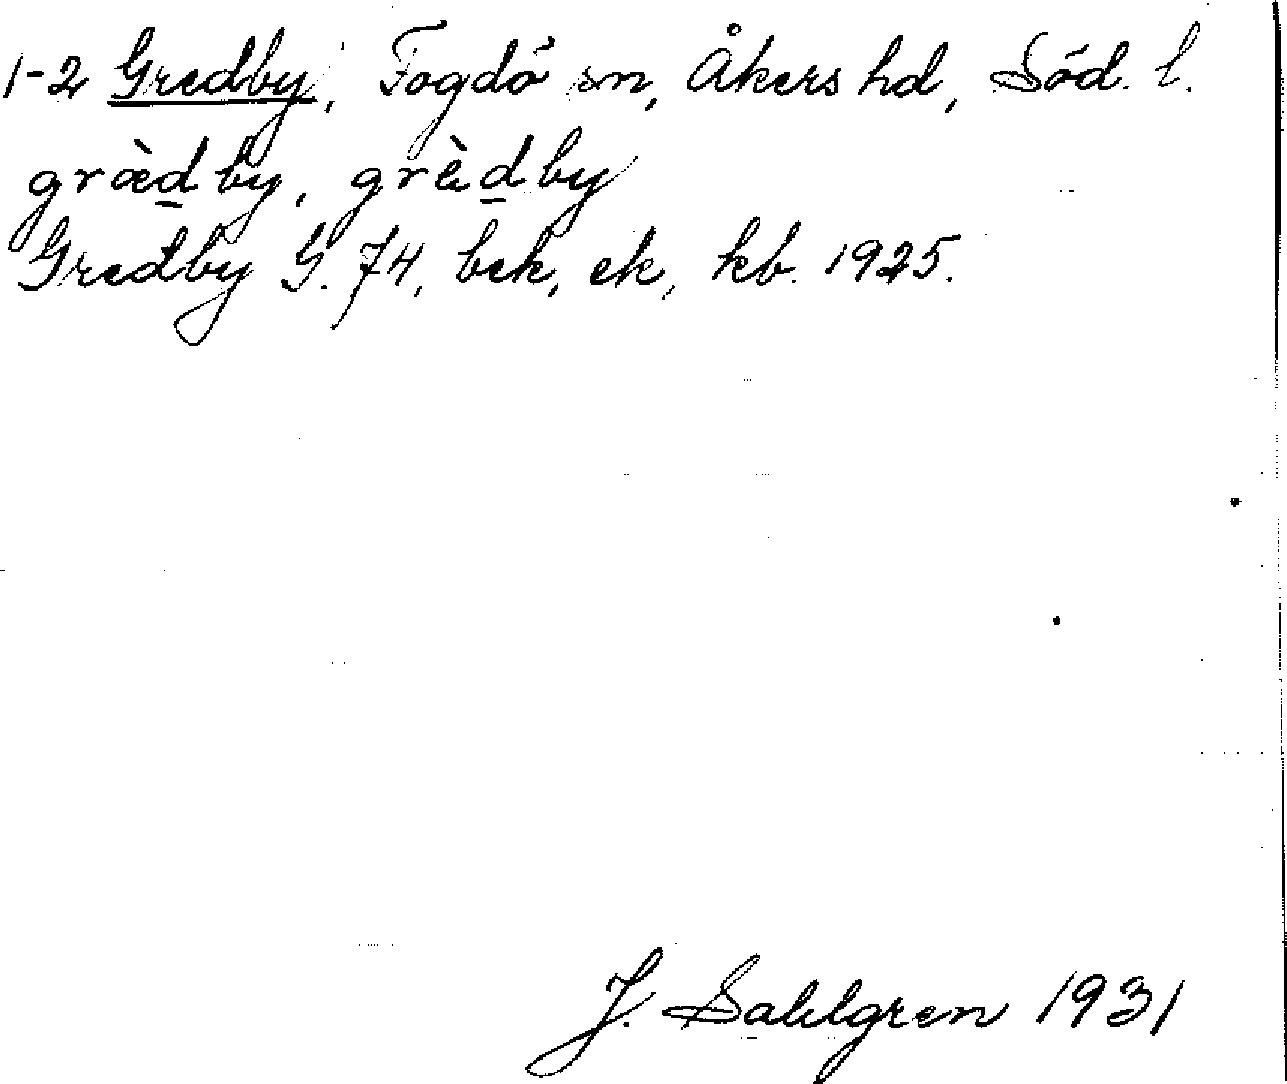 1-2 Gredby, Fogdö sn, Åkers hd, Söd. l.
græ̀d̲by, grèd̲by
Gredby G. 74, bek, ek, kb. 1925.
J. Sahlgren 1931